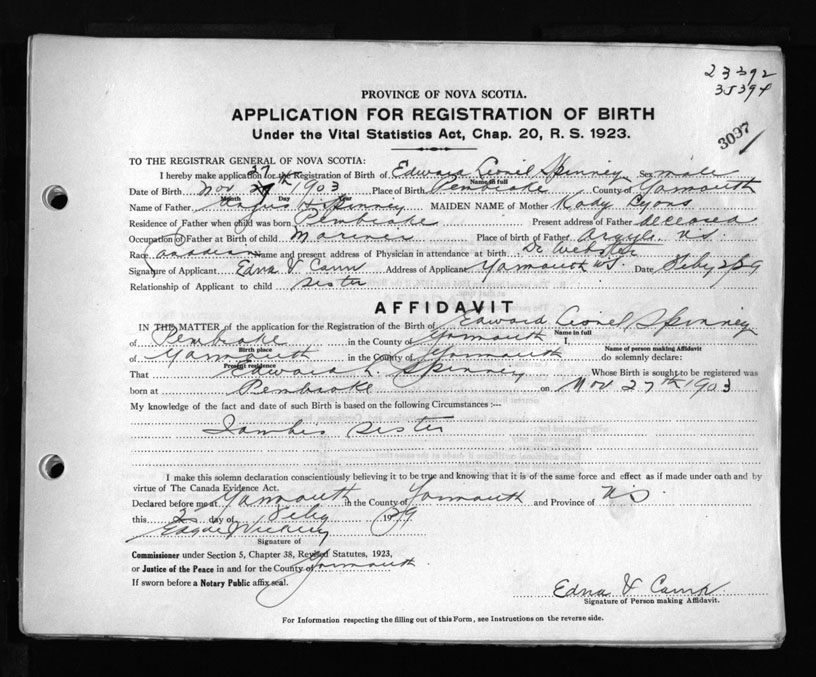 23392
35394
3097
PROVINCE OF NOVA SCOTIA.
APPLICATION FOR REGISTRATION OF BIRTH
Under the Vital Statistics Act, Chap. 20, R. S. 1923.
TO THE REGISTRAR GENERAL OF NOVA SCOTIA:
I hereby make application for the Registration of Birth of Edward Lionel Spinney Sex male
Name in full
Date of Birth Nov 27th 1903 Place of Birth Pembroke County of Yarmouth
Month Day Year
Name of Father H Spinney MAIDEN NAME of Mother Lyons
Residence of Father when child was born Pembroke Present address of Father deceased
Occupation of Father at Birth of child Mariner Place of Birth of Father Argyle NS
Race Name and present address of Physician in attendance at birth Dr Webster
Signature of Applicant Edna V Cann Address of Applicant Yarmouth NS. Date Feby
Relationship of Applicant to child sister
AFFIDAVIT
IN THE MATTER of the application for the Registration of the Birth of Edward Lionel Spinney
Name in full
of Pembroke in the County of Yarmouth I,
Birth place Name of person making Affidavit
of Yarmouth in the County of Yarmouth do solemnly declare:
Present residence
That Edward L. Spinney Whose Birth is sought to be registered was
born at Pembroke on Nov 27th 1903
My knowledge of the fact and date of such Birth is based on the following Circumstances :—
I am his sister
I make this solemn declaration conscientiously believing it to be true and knowing that it is of the same force and effect as if made under oath and by
virtue of The Canada Evidence Act.
Declared before me at Yarmouth in the County of Yarmouth and Province of NS
this 2 day of Feby 1939
Signature of
Commissioner under Section 5, Chapter 38, Revised Statutes, 1923,
or Justice of the Peace in and for the County of Yarmouth
If sworn before a Notary Public affix seal.
Edna V Cann
Signature of Person making Affidavit.
For Information respecting the filling out of this Form, see Instructions on the reverse side.